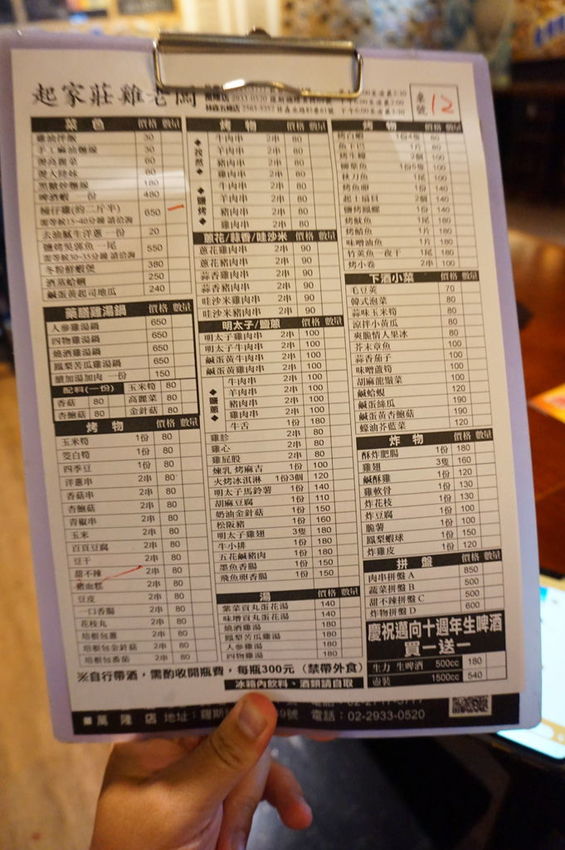 起家莊雞老闆
桌號 12
菜色 價格 數量
雞油拌飯 30
手工麻油麵線 30
燙高麗菜 60
燙大陸妹 80
黑豬炒麵線 180
啤酒蝦 一份 480
桶仔雞(約二斤半) 650
需等候35~40分鐘 請洽詢
去油膩生洋蔥 一份 20
鹽烤吳郭魚 一尾 550
冬粉鮮蝦煲 380
酒蒸蛤蜊 250
鹹蛋黃起司地瓜 240
藥膳雞湯鍋 價格 數量
人參雞湯鍋 650
四物雞湯鍋 650
燒酒雞湯鍋 650
鳳梨苦瓜雞湯鍋 650
續加湯加肉 一份 150
配料(一份) 玉米筍 80
香菇 80 高麗菜 80
杏鮑菇 80 金針菇 80
烤物 價格 數量
玉米筍 1份 80
茭白筍 1份 80
四季豆 1份 80
洋蔥串 2串 80
香菇串 2串 80
杏鮑菇 2串 80
青椒串 2串 80
玉米 2串 80
百頁豆腐 2串 80
豆干 2串 80
甜不辣 2串 80
豬血糕 2串 80
豆皮 2串 80
一口香腸 2串 80
花枝丸 2串 80
培根包蔥 2串 80
培根包金針菇 2串 80
培根包番茄 2串 80
烤物 價格 數量
孜然
羊肉串 2串 80
牛肉串 2串 80
豬肉串 2串 80
雞肉串 2串 80
鹽烤
牛肉串 2串 80
羊肉串 2串 80
豬肉串 2串 80
雞肉串 2串 80
蔥花/蒜香/哇沙米 價格 數量
蔥花雞肉串 2串 90
蔥花豬肉串 2串 90
蒜香雞肉串 2串 90
蒜香豬肉串 2串 90
哇沙米雞肉串 2串 90
哇沙米豬肉串 2串 90
明太子/鹽蔥 價格 數量
明太子雞肉串 2串 100
明太子牛肉串 2串 100
鹹蛋黃牛肉串 2串 100
鹹蛋黃雞肉串 2串 100
鹽蔥
牛肉串 2串 80
羊肉串 2串 80
豬肉串 2串 80
雞肉串 2串 80
牛舌 1份 180
雞胗 2串 80
雞心 2串 80
雞屁股 2串 80
煉乳 烤麻吉 1份 100
火烤冰淇淋 1份3個 120
明太子馬鈴薯 1份 140
胡麻豆腐 1份 110
奶油金針菇 1份 150
松阪豬 1份 160
明太子雞翅 3隻 180
牛小排 1份 180
五花鹹豬肉 1份 180
墨魚香腸 1份 150
飛魚卵香腸 1份 150
湯 價格 數量
紫菜貢丸蛋花湯 140
味增貢丸蛋花湯 140
燒酒雞湯 180
鳳梨苦瓜雞湯 180
人參雞湯 180
四物雞湯 180
烤物 價格 數量
烤白蝦
魚下巴 1片 80
烤生蠔 2個 100
柳葉魚 1份5隻 100
秋刀魚 1尾 100
烤魚卵 1份 140
起士扇貝 2個 140
鹽烤鳳螺 1份 140
烤魷魚 1尾 180
烤鯖魚 1片 180
味噌油魚 1片 180
竹筴魚一夜干 1尾 180
烤小卷 2串 100
下酒小菜 價格 數量
毛豆莢 70
韓式泡菜 80
蒜味玉米筍 80
涼拌小黃瓜 80
爽脆情人果冰 80
芥末章魚 100
蒜香茄子 100
味噌蘆筍 100
胡麻龍鬚菜 100
鹹蛤蜊 120
鹹蛋絲瓜 190
鹹蛋黃杏鮑菇 190
蠔油芥藍菜 120
炸物 價格 數量
酥炸肥腸 1份 180
雞翅 3隻 160
鹹酥雞 1份 120
雞軟骨 1份 130
炸花枝 1份 130
炸豆腐 1份 100
脆薯 1份 100
鳳梨蝦球 1份 150
炸雞皮 1份 120
拼盤 價格 數量
肉串拼盤 A 850
蔬菜拼盤 B 500
甜不辣拼盤 C 500
炸物拼盤 D 600
慶祝邁向十週年生啤酒
買一送一
生力 生啤酒 500cc 180
壺裝 1500cc 540
※自行帶酒，需酌收開瓶費，每瓶300元（禁帶外食）
冰箱內飲料、酒類請自取
■萬隆店 地址：羅斯 9號 電話：02-2933-0520